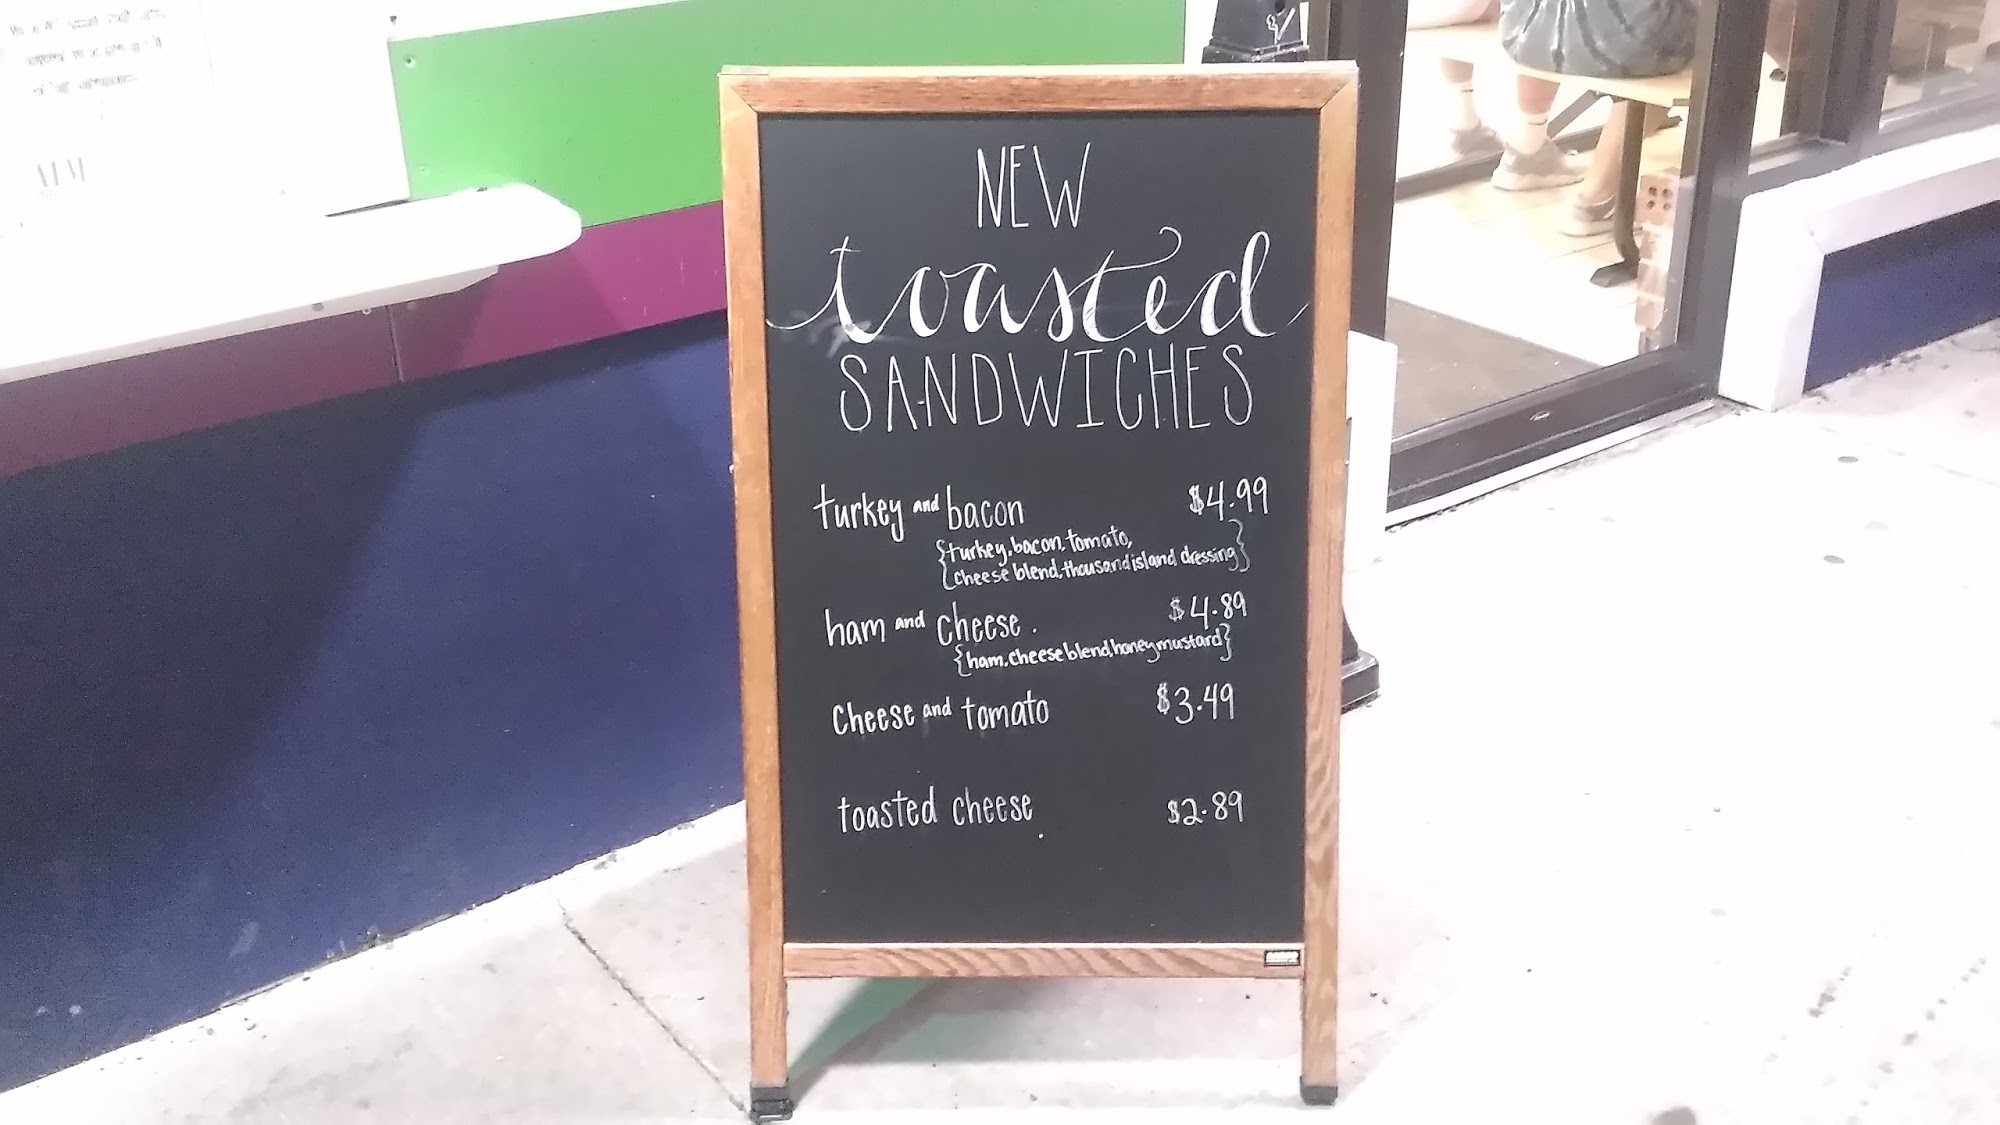 NEW
toasted
SANDWICHES
turkey and bacon $4.99
{turkey, bacon, tomato,
cheese blend, thousand island dressing}
ham and cheese . $4.89
{ham, cheese blend, honey mustard}
cheese and tomato $3.49
toasted cheese . $2.89